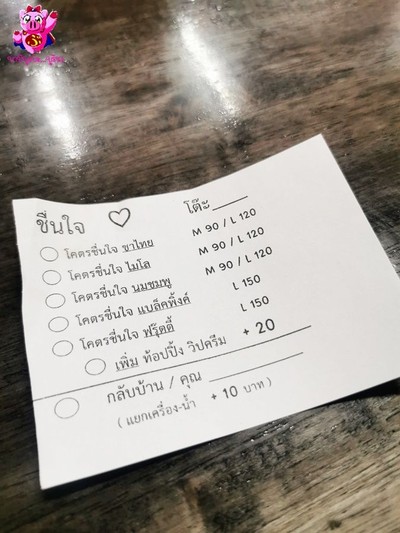 ชื่นใจ ♡ โต๊ะ
โคตรชื่นใจ ชาไทย M 90 / L 120
โคตรชื่นใจ ไมโล M 90 / L 120
โคตรชื่นใจ นมชมพู M 90 / L 120
โคตรชื่นใจ แบล็คพิ้งค์ L 150
โคตรชื่นใจ ฟรุ๊ตตี้ L 150
เพิ่ม ท้อปปิ้ง วิปครีม + 20
กลับบ้าน / คุณ
( แยกเครื่อง-น้ำ + 10 บาท )